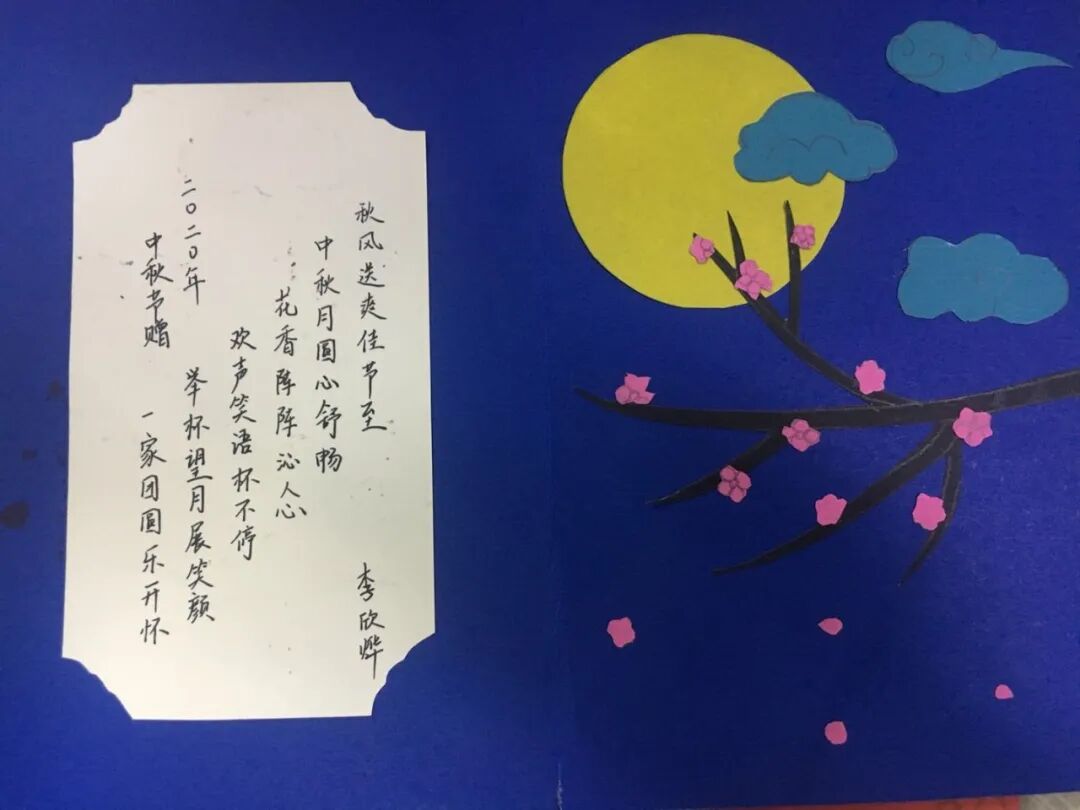 秋风送爽佳节至
李欣烨
中秋月圆心舒畅
花香阵阵沁人心
欢声笑语杯不停
举杯望月展笑颜
一家团圆乐开怀
二〇二〇年
中秋节赠